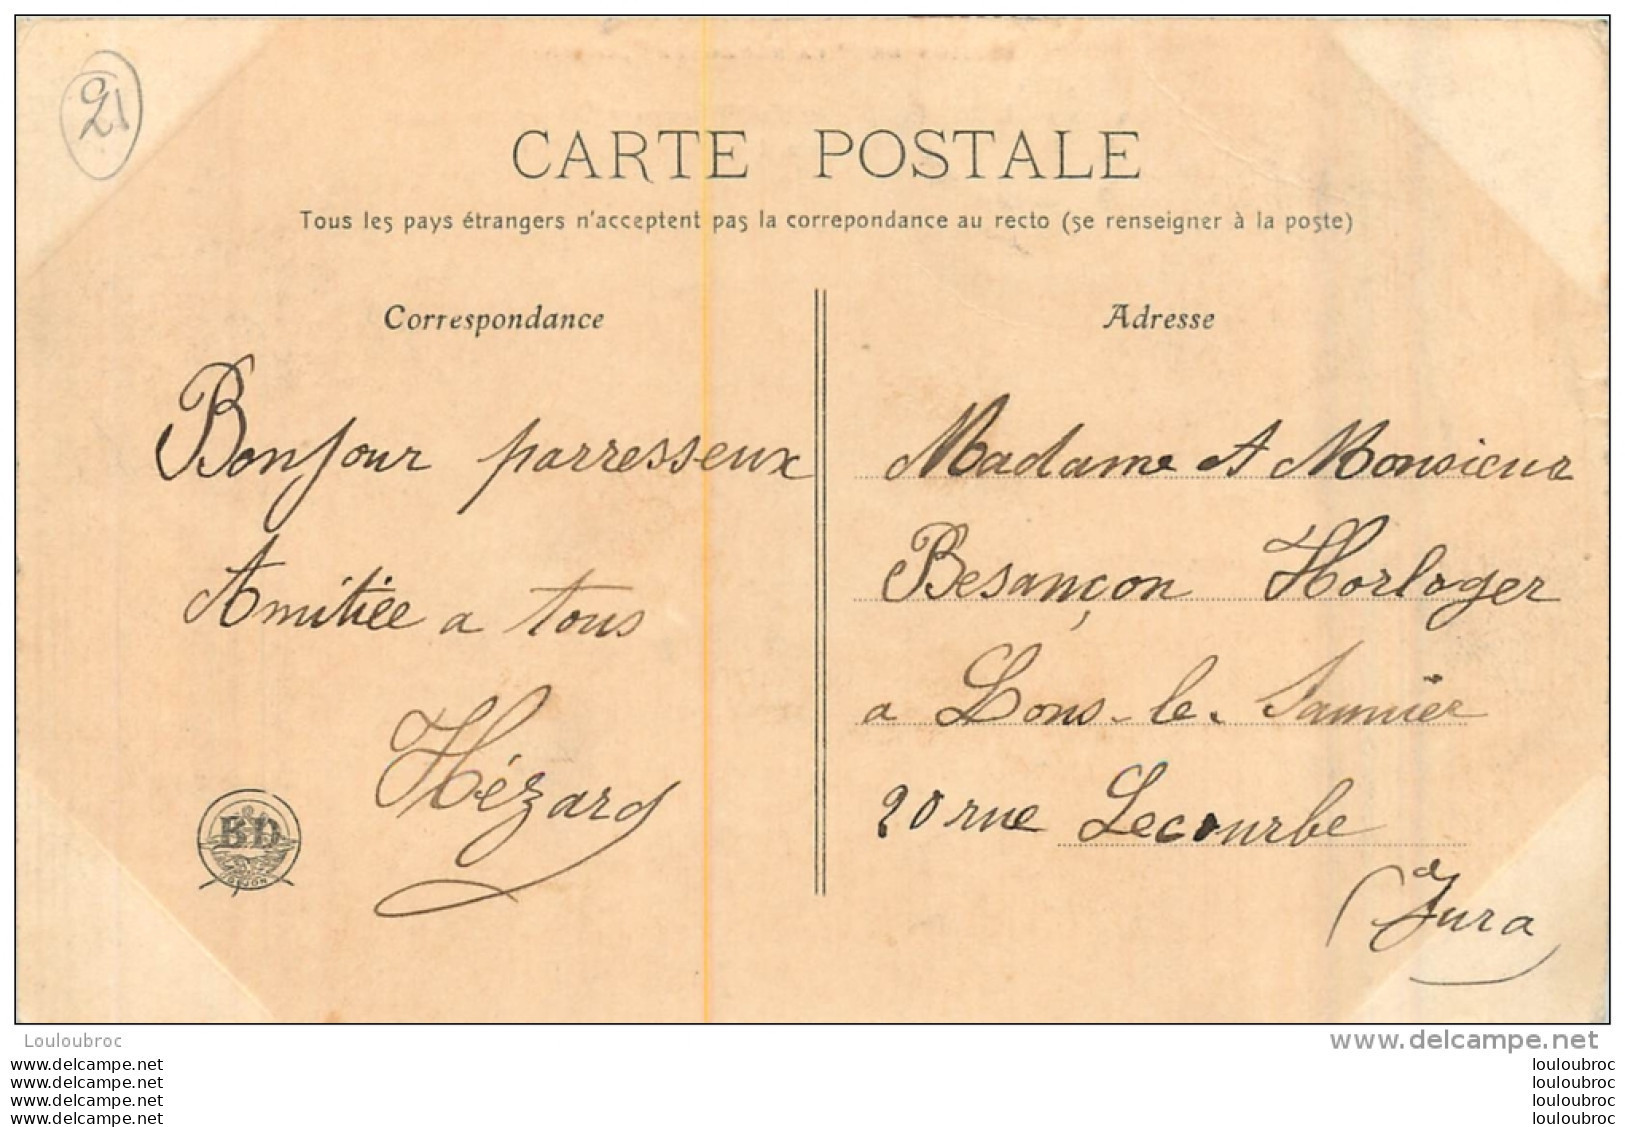 21
CARTE POSTALE
Tous les pays étrangers n'acceptent pas la correpondance au recto (se renseigner à la poste)
Correspondance
Bonjour parresseux
Amitiée a tous
Hézard
B.D
DIJON
Adresse
Madame et Monsieur
Besançon Horloger
a Lons-le-Saunier
20 rue Lecourbe
(Jura
Louloubroc
www.delcampe.net
www.delcampe.net
www.delcampe.net
www.delcampe.net
www.delcampe.net
louloubroc
louloubroc
louloubroc
louloubroc